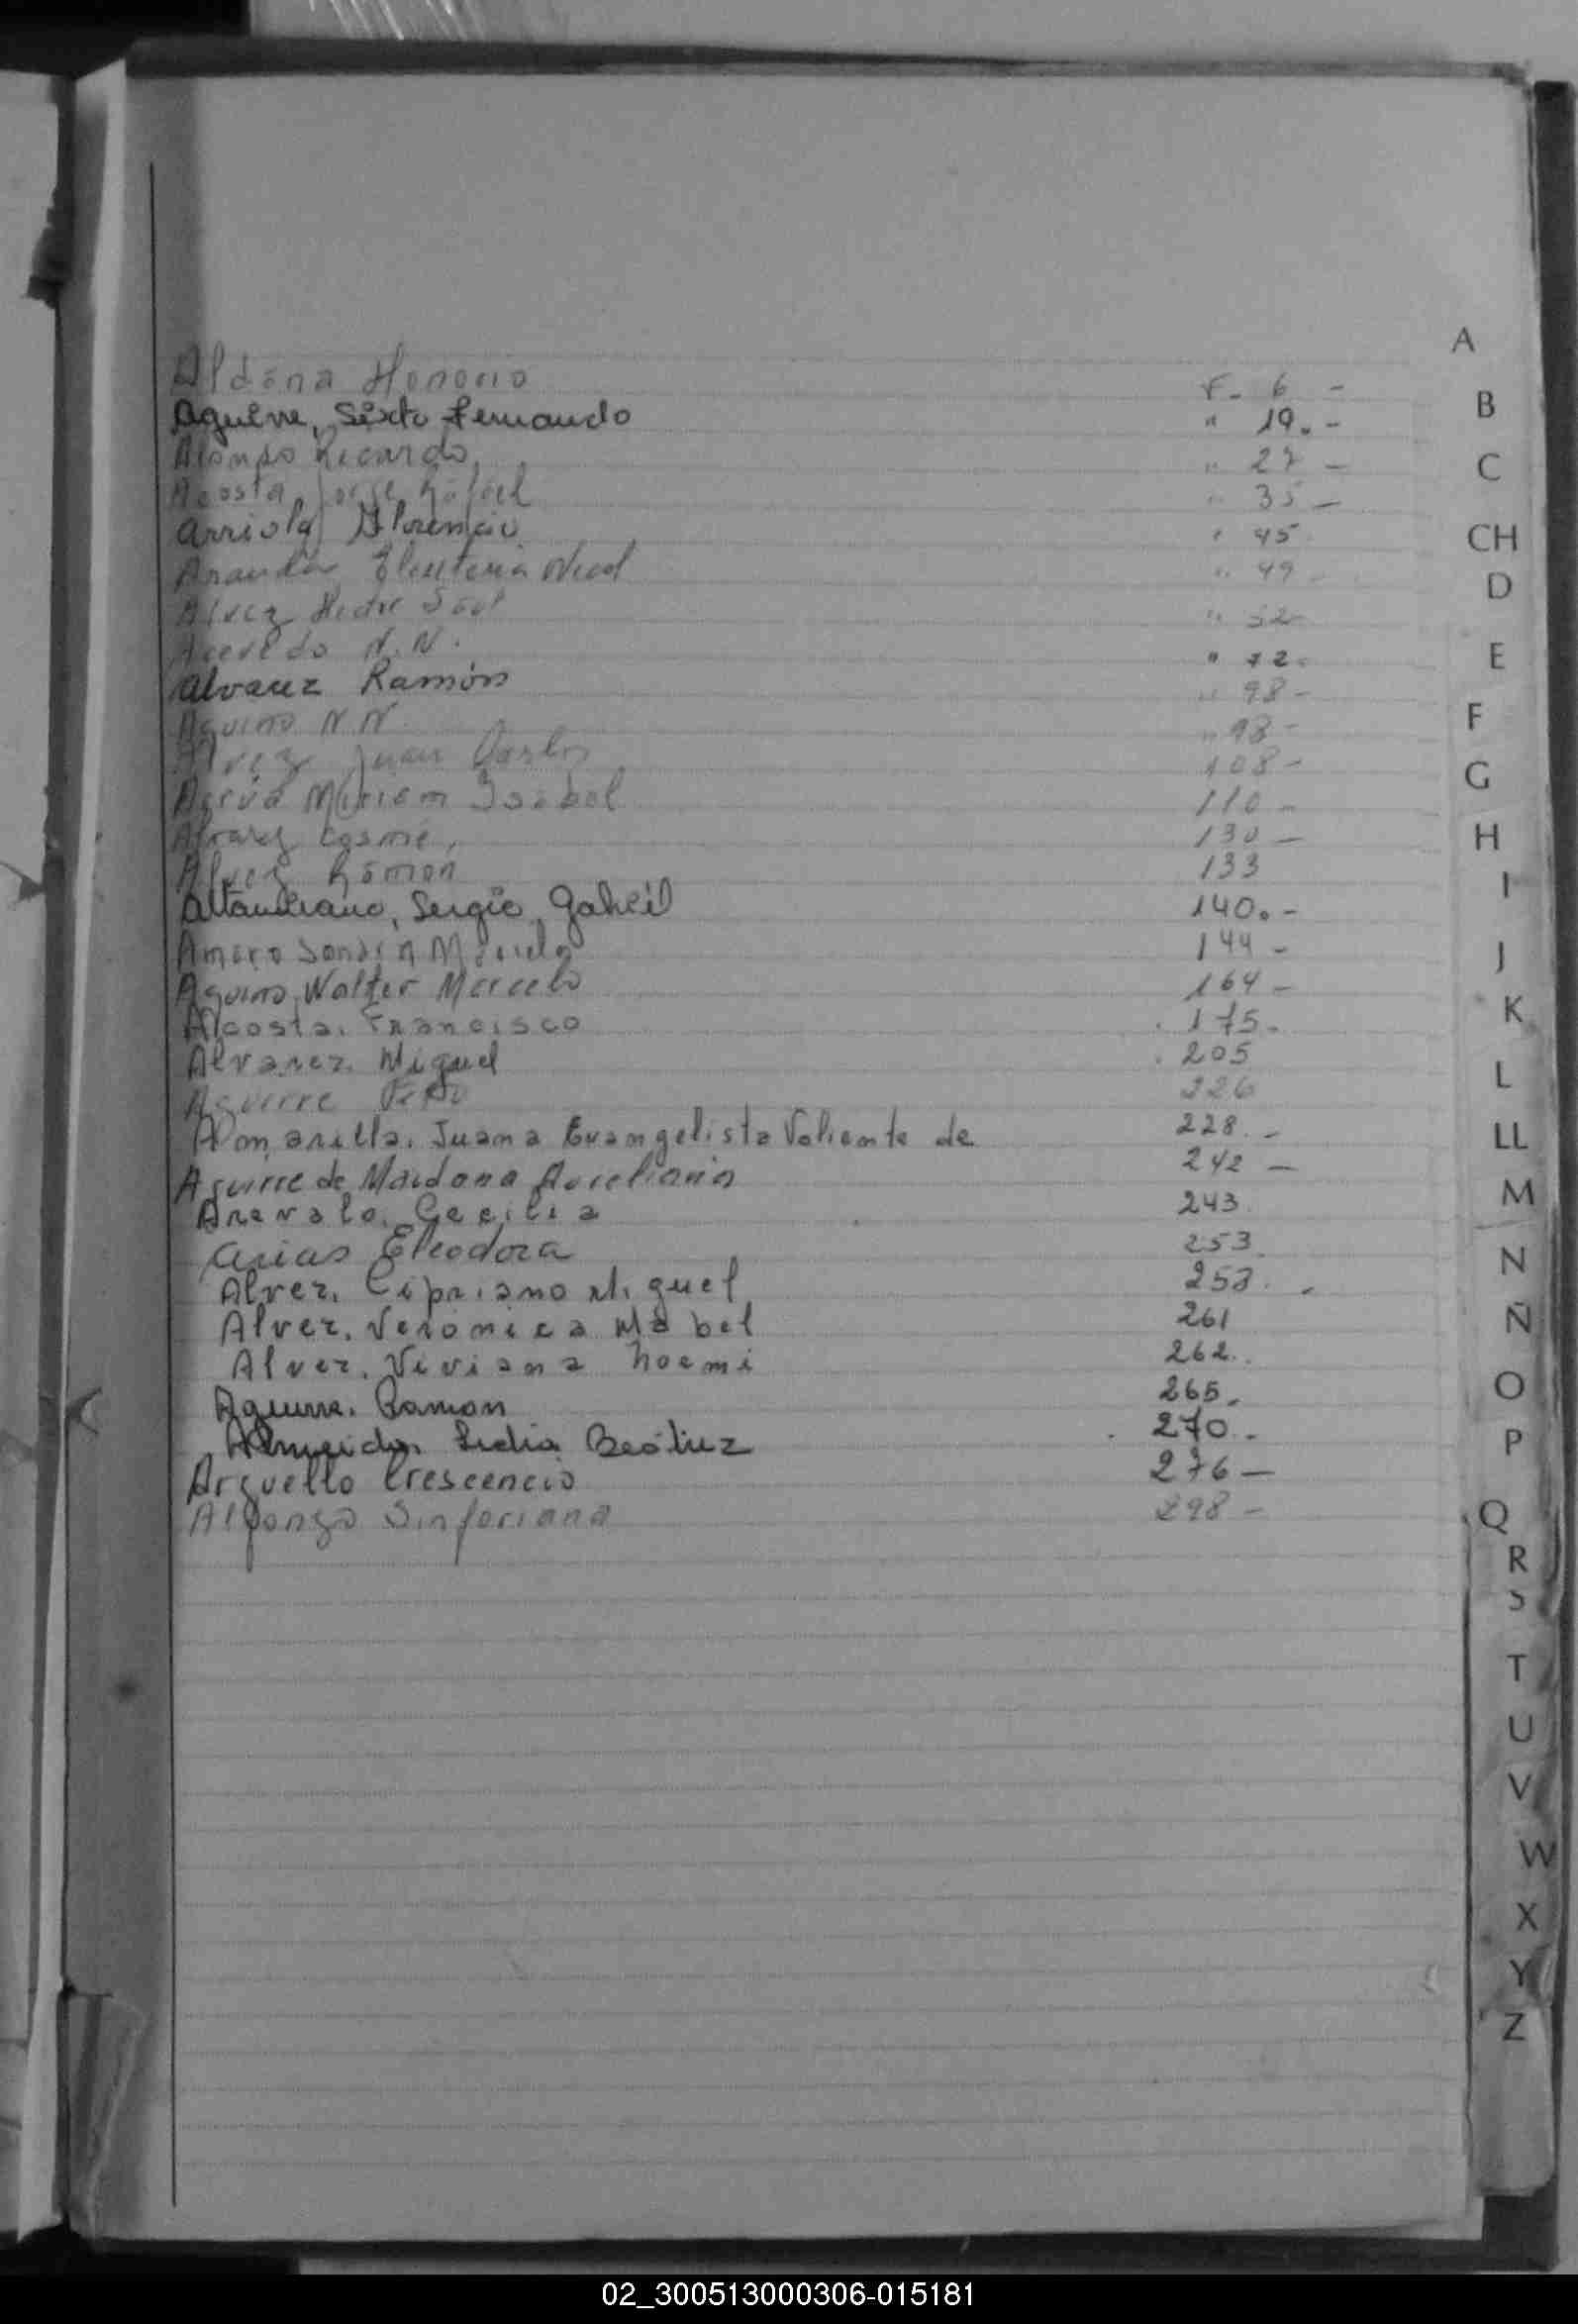 Aldana Honorio F. 6 -
Aguirre, Sixto Fernando " 19. -
Alonso Ricardo " 27 -
Acosta Jorge Rafael " 35 -
Arriola Florencio " 45
Aranda Eleuteria " 49 -
Alvez Hector Saul " 52
Acevedo N.N. " 72.
Alvarez Ramón " 98 -
Aquino N N " 98 -
Alvez Juan Carlos 108 -
Miriam Isabel 110 -
Alvarez Cosme, 130 -
Alvez Ramon 133
Altamirano, Sergio Gabriel 140. -
Amaro 144 -
Aquino, Walter Marcelo 164 -
Acosta. Francisco . 175.
Alvarez. Miguel . 205
Aguirre 226
Almarilla. Juana Evangelista Valiente de 228. -
Aguirre de Maidana Aureliana 242 -
Arevalo. Cecilia 243.
Arias Eleodora 253.
Alvez. Cipriano Miguel 253. .
Alvez. Veronica Mabel 261
Alvez. Viviana Noemi 262..
Aguirre. Ramon 265.
Almeida Lidia Beátriz . 270..
Arguello Crescencio 276 -
Alfonzo Sinforiana 298 -
A
B
C
CH
D
E
F
G
H
I
J
K
L
LL
M
N
Ñ
O
P
Q
R
S
T
U
V
W
X
Y
Z
02_300513000306-015181